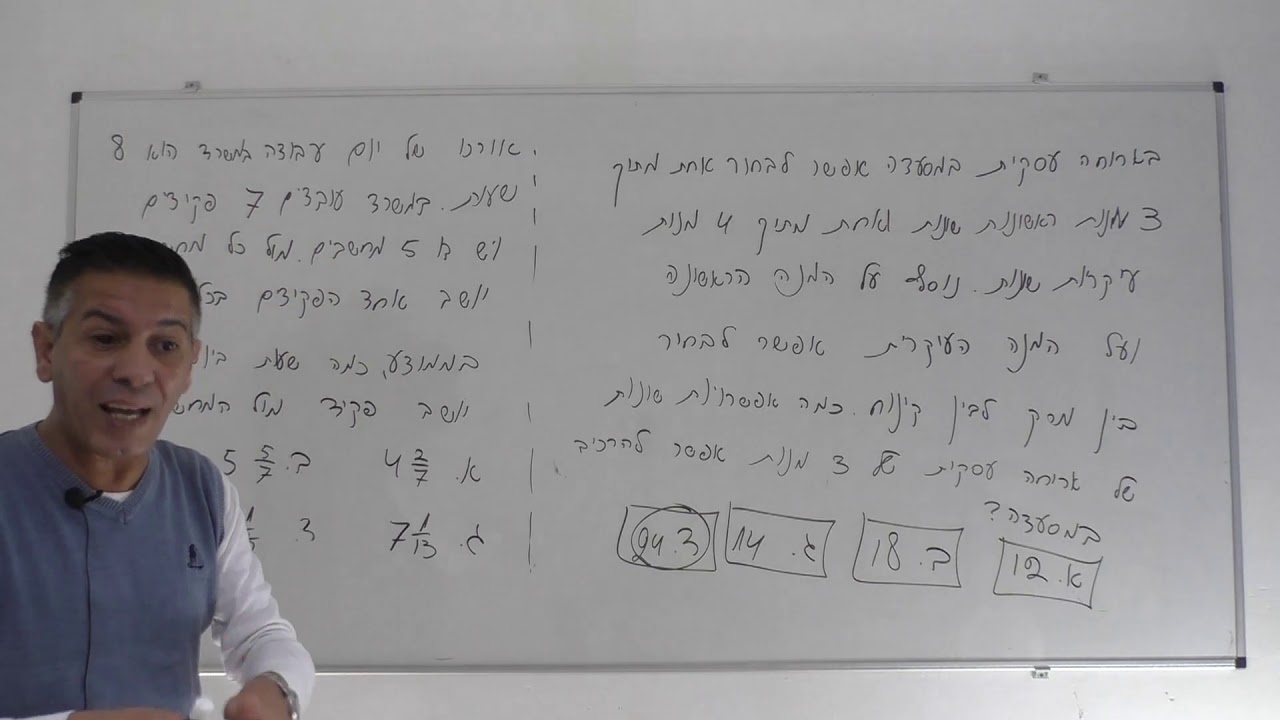 בארוחה עסקית במסעדה אפשר לבחור אחת מתוך
3 מנות ראשונות שונות ואחת מתוך 4 מנות
עיקריות שונות. נוסף על המנה הראשונה
ועל המנה העיקרית אפשר לבחור
בין מרק לבין קינוח. כמה אפשרויות שונות
של ארוחה עסקית של 3 מנות אפשר להרכיב
במסעדה?
א. 12 ב. 18 ג. 14 ד. 24
אורכו של יום עבודה במשרד הוא 8
שעות. במשרד עובדים 7 פקידים
ויש בו 5 מחשבים. מול כל
יושב אחד הפקידים
בממוצע, כמה שעות
יושב פקיד מול
א. 4 2/7 ב. 5 5/7
ג. 7 1/13 ד.